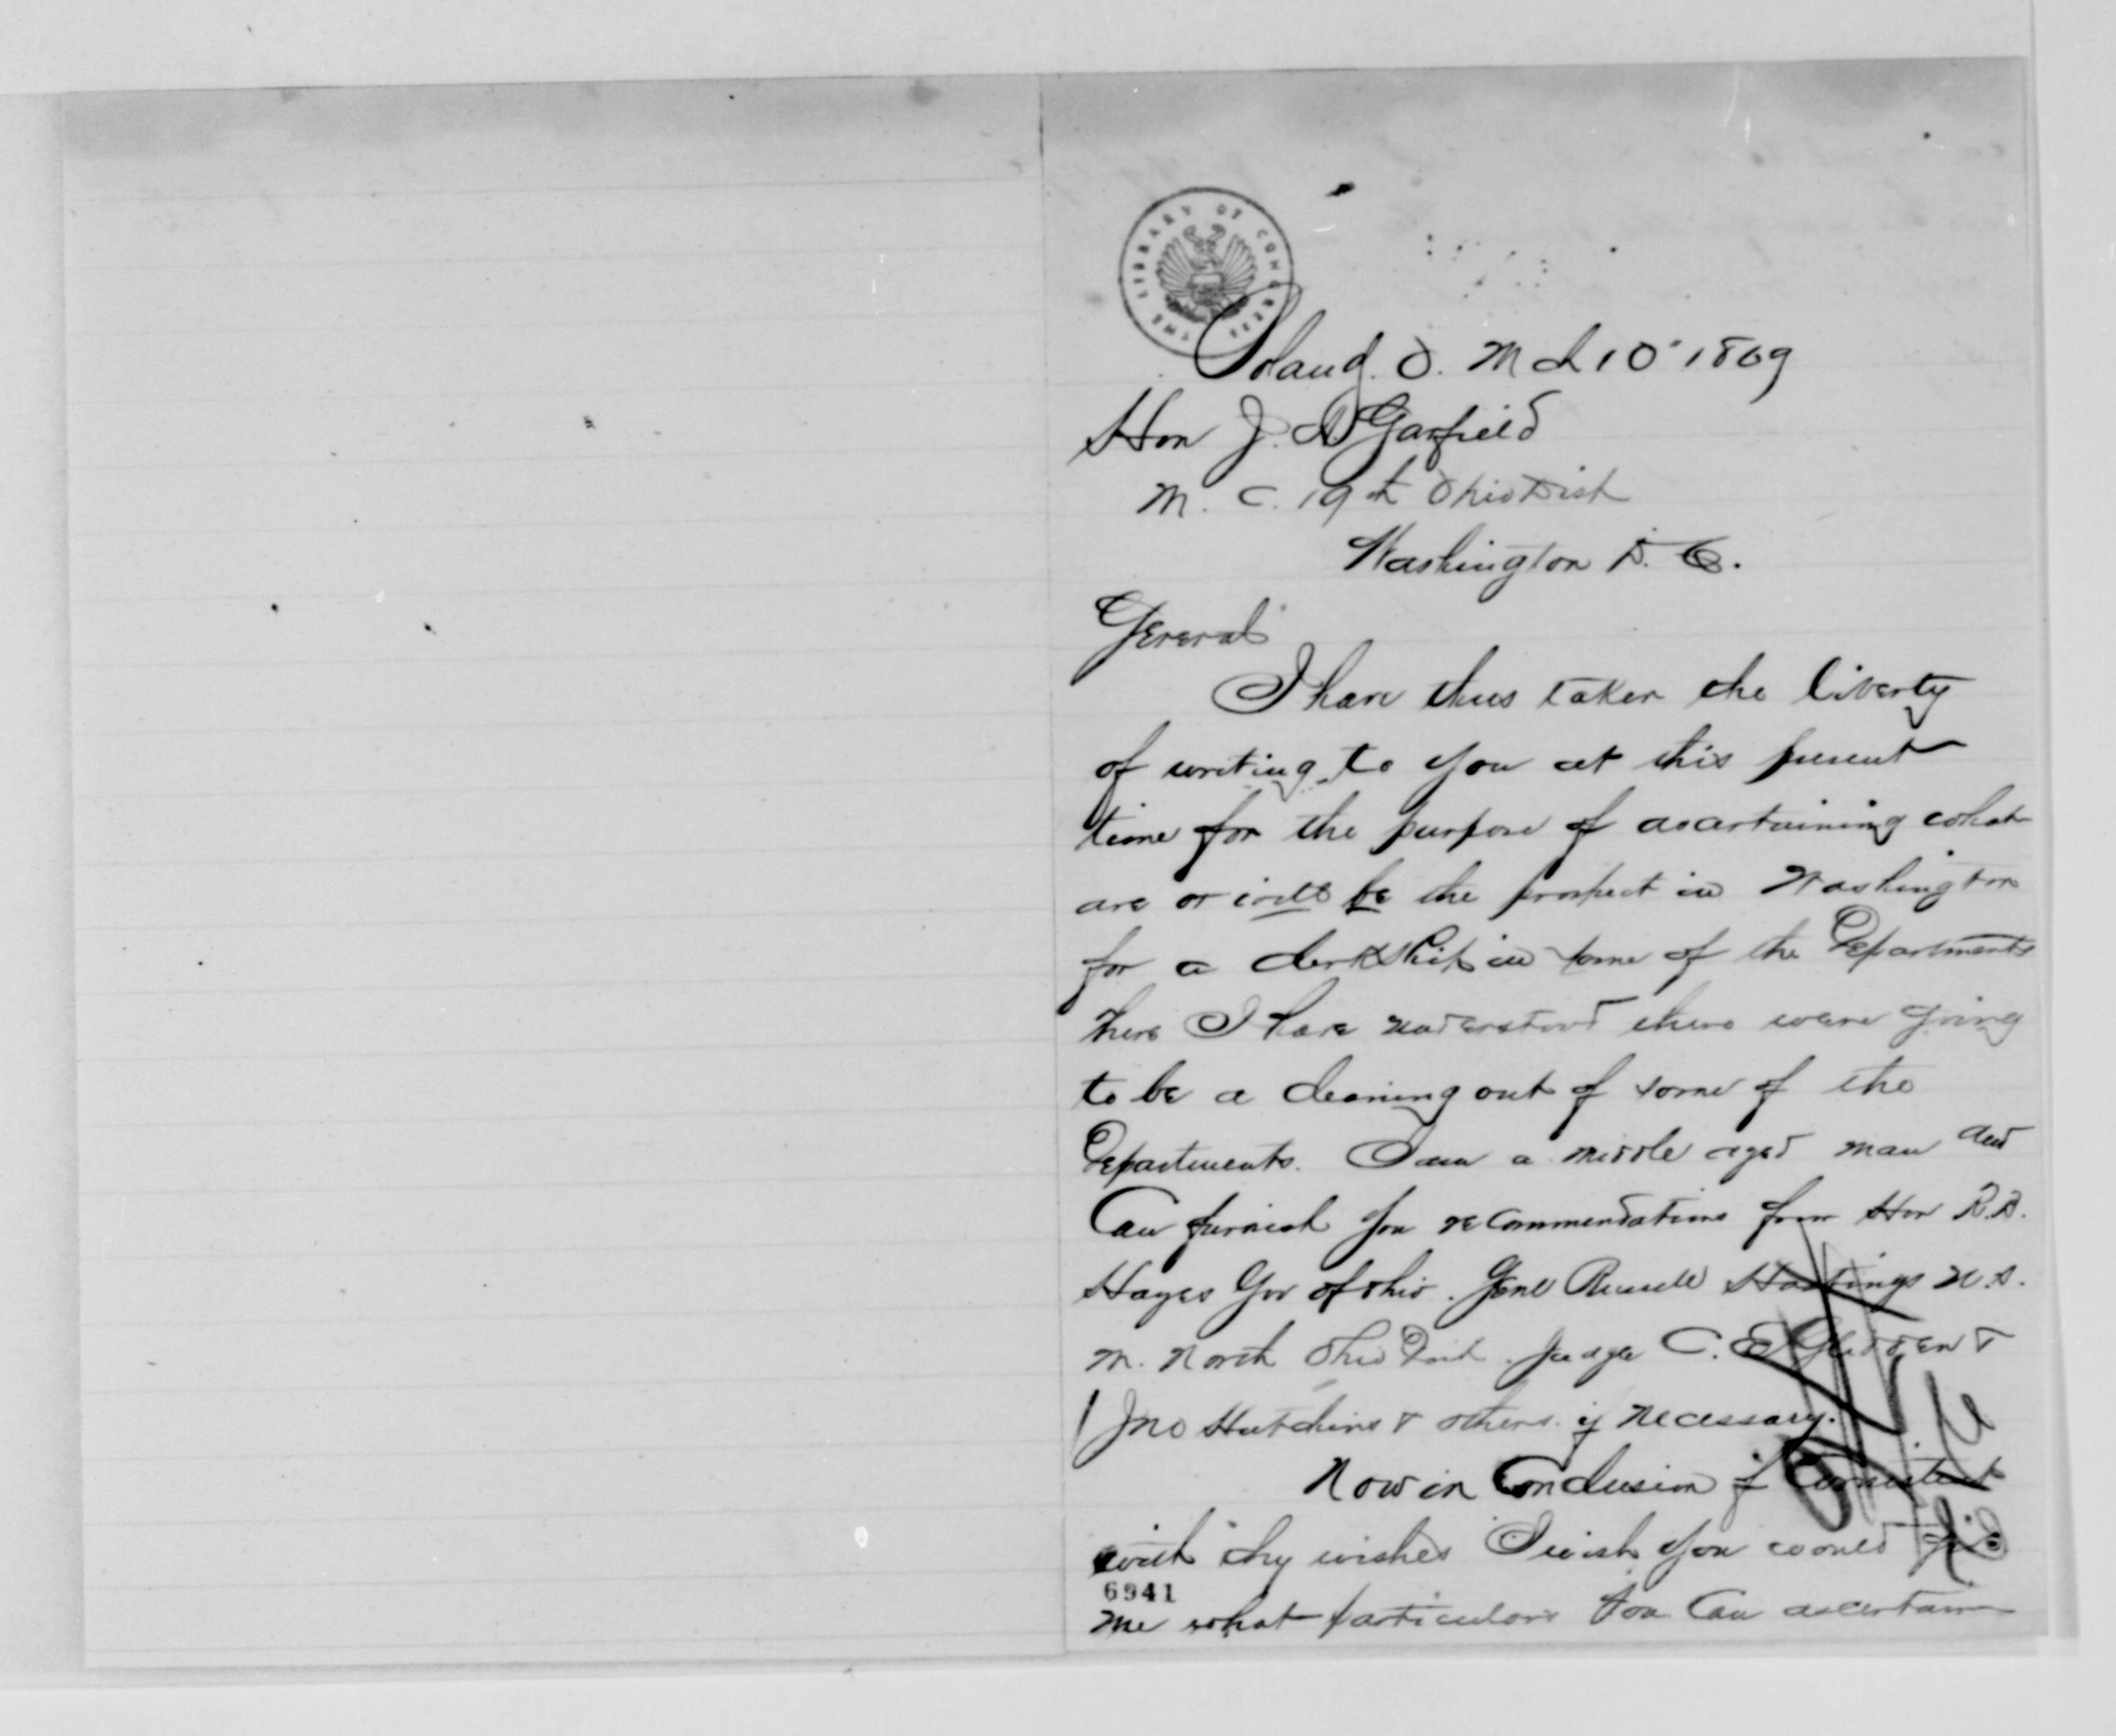 THE LIBRARY OF CONGRESS
Poland. O. Mch 10" 1869
Hon J. A Garfield
M. C. 19th Ohio Dist
Washington D. C.
General
I have thus taken the liberty
of writing to you at this present
time for the purpose of ascertaining what
are or will be the prospect in Washington
for a clerkship in some of the Departments
there I have understood there were going
to be a cleaning out of some of the
Departments. I am a middle aged man and
Can furnish you recommendations from Hon R. B.
Hayes Gov of Ohio. Genl Russell Hastings U. S.
M. North Ohio Dist. Judge C. E Glidden &
Jno Hutchins & others if necessary.
Now in Conclusion if Consistent
with thy wishes I wish you would give
6941
me what particulars You Can ascertain